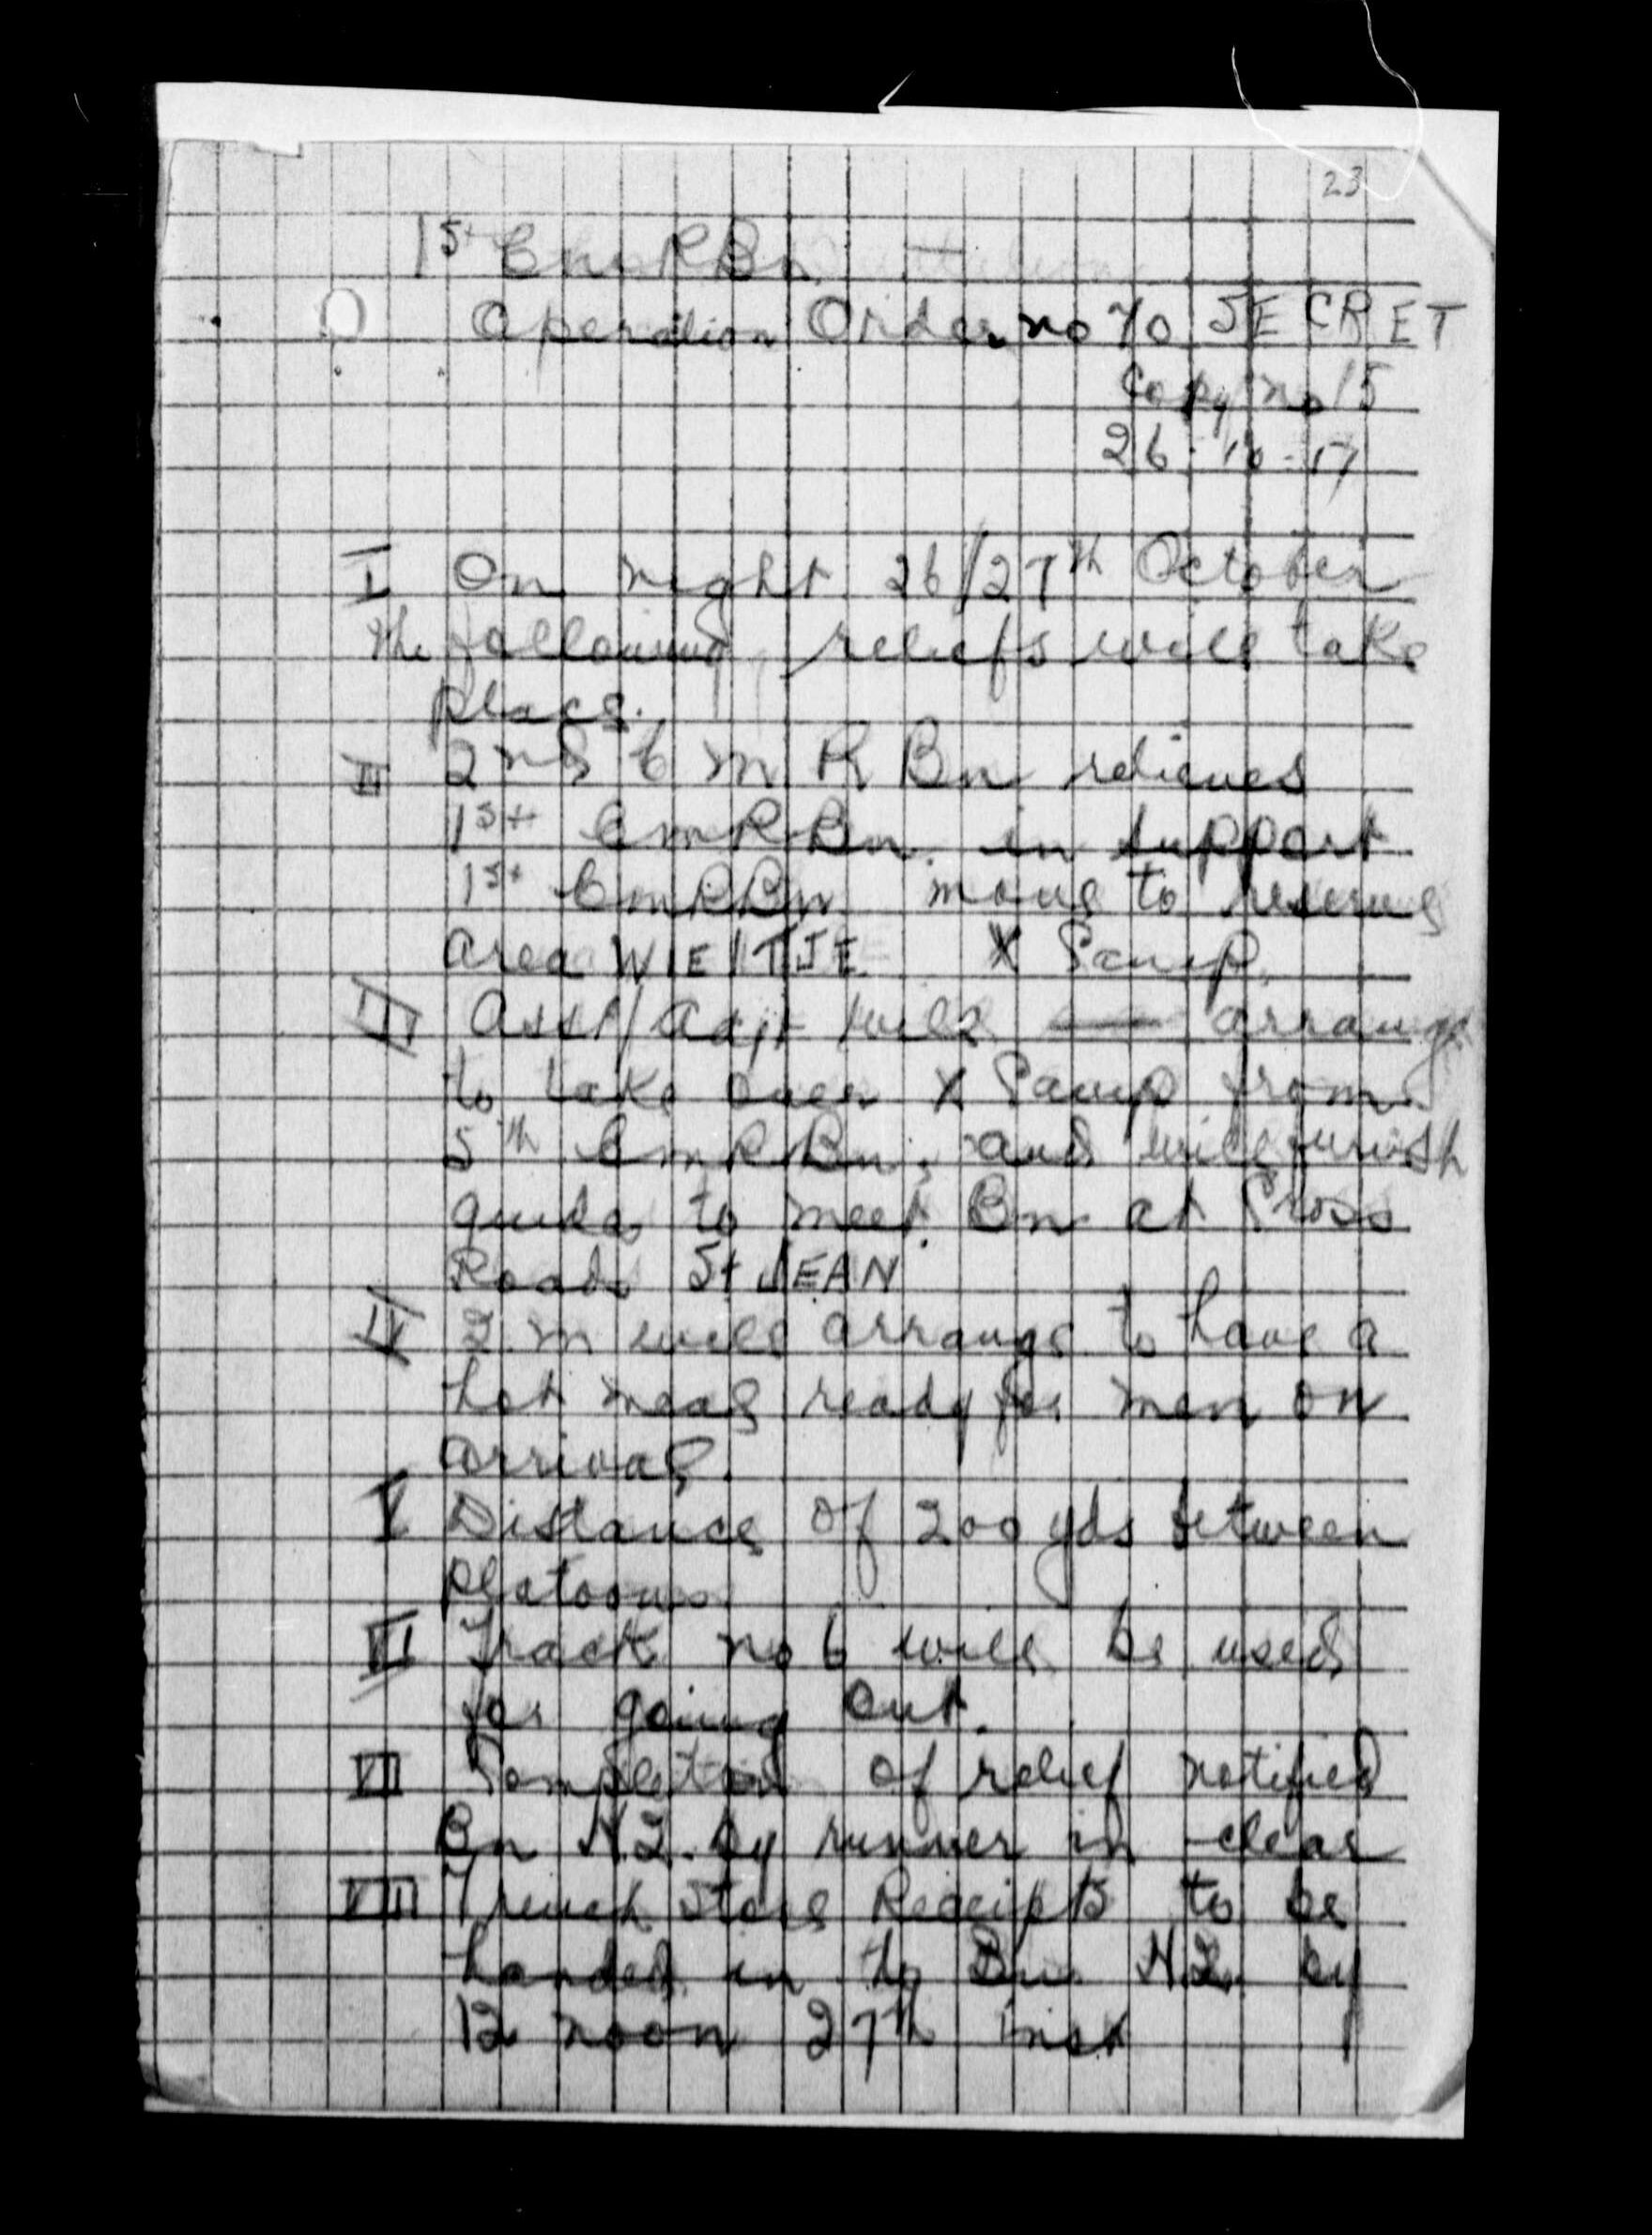 23
1st CMRBn
Operation Order no 70 SECRET
Copy no 15
26-10-17
I On night 26/27th October
the following reliefs will take
place.
II 2nd C M R Bn relieves
1st CMRBn. in support
1st CMRBn move to reserve
area WIELTJE X Camp.
III Asst/Adjt will arrange
to take over X Camp from
5th CMR Bn, and will furnish
guides to meet Bn at Cross
Roads St JEAN
IV Q.M will arrange to have a
hot meal ready for men on
arrival.
V Distance of 200 yds between
platoons.
VI Track no 6 will be used
for going out.
VII Completion of relief notified
Bn H.Q. by runner in clear
VIII Trench Store Receipts to be
handed in to Bn H.Q. by
12 noon 27th inst